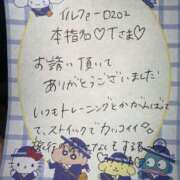 イルフェーロ202
本指名♡Tさま♡
お誘い頂いて
ありがとうございました!
いつもトレーニングとかがんばって
て、ストイックでカッコイイ
旅行の